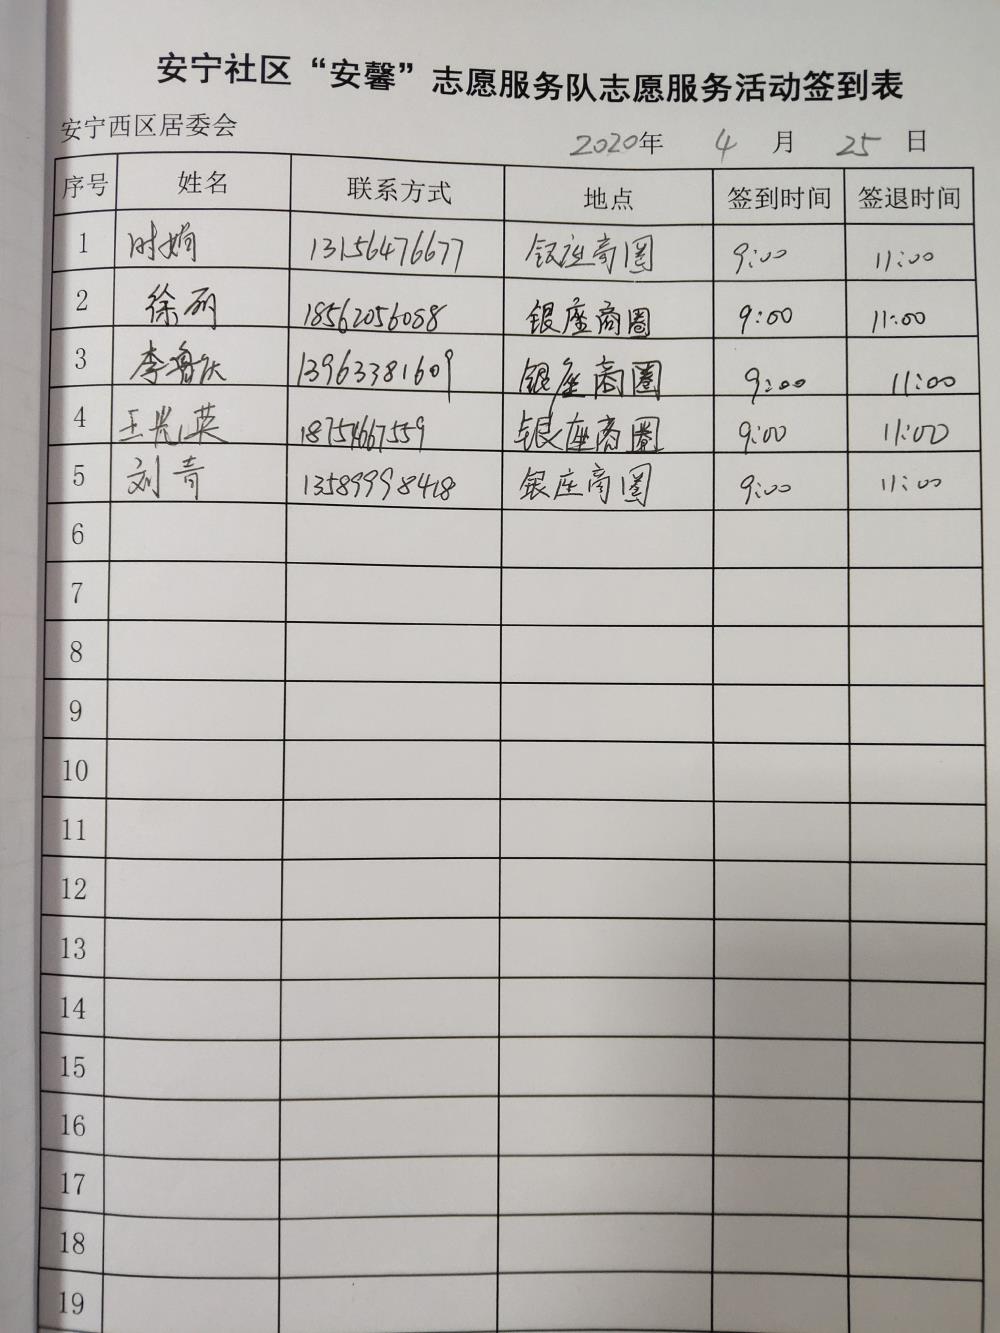 安宁社区“安馨”志愿服务队志愿服务活动签到表
安宁西区居委会 2020年 4 月 25 日
序号 姓名 联系方式 地点 签到时间 签退时间
1 时娟 13156476677 银座商圈 9:00 11:00
2 徐丽 18562056068 银座商圈 9:00 11:00
3 李鲁 13963381609 银座商圈 9:00 11:00
4 王光英 18754667559 银座商圈 9:00 11:00
5 刘奇 13589998418 银座商圈 9:00 11:00
6
7
8
9
10
11
12
13
14
15
16
17
18
19